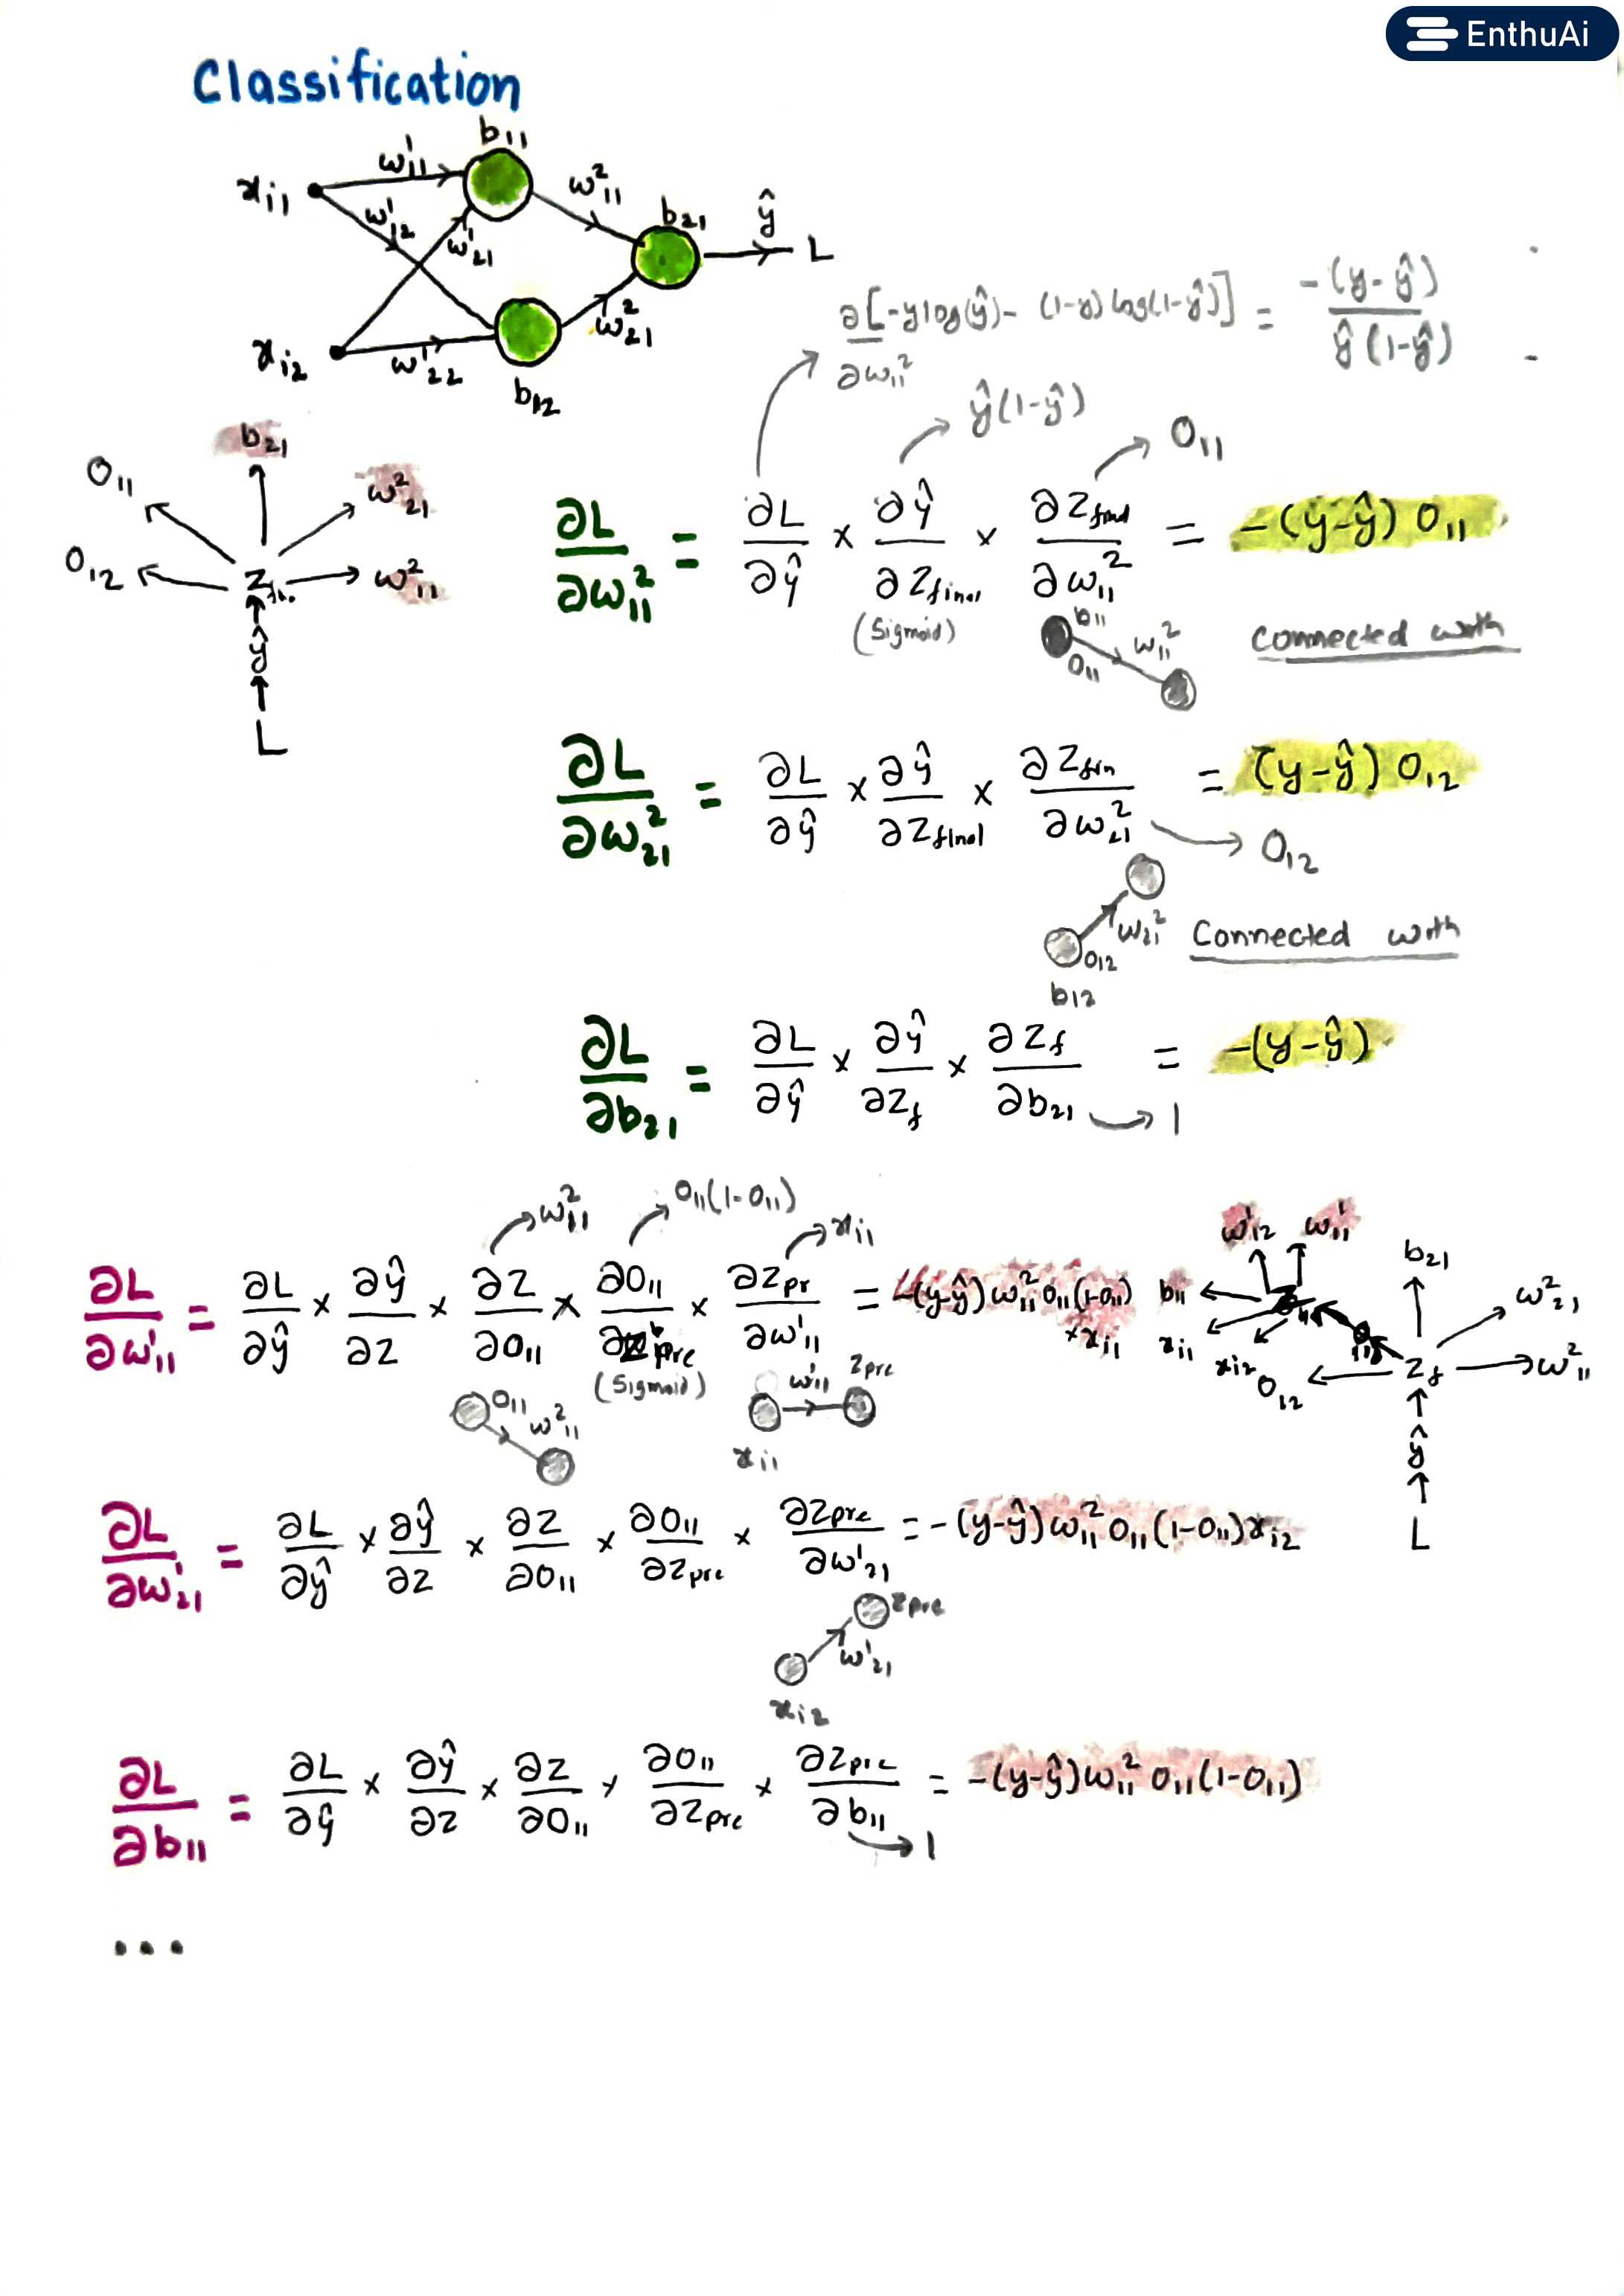 EnthuAi
Classification
x_i1 w¹₁₁ b₁₁ w²₁₁
w¹₁₂ w¹₂₁ b₂₁ ŷ L
x_i2 w¹₂₂ b₁₂ w²₂₁
∂[-ylog(ŷ) - (1-y)log(1-ŷ)] / ∂w²₁₁ = -(y-ŷ) / ŷ(1-ŷ)
ŷ(1-ŷ)
O₁₁
b₂₁
O₁₁ w²₂₁
O₁₂ Z_fin w²₁₁
ŷ
L
∂L/∂w²₁₁ = ∂L/∂ŷ × ∂ŷ/∂Z_final × ∂Z_final/∂w²₁₁ = -(y-ŷ) O₁₁
(Sigmoid)
b₁₁ O₁₁ w²₁₁ Connected with
∂L/∂w²₂₁ = ∂L/∂ŷ × ∂ŷ/∂Z_final × ∂Z_fin/∂w²₂₁ = (y-ŷ) O₁₂
O₁₂
w²₂₁ O₁₂ b₁₂ Connected with
∂L/∂b₂₁ = ∂L/∂ŷ × ∂ŷ/∂Z_f × ∂Z_f/∂b₂₁ = -(y-ŷ)
1
w²₁₁ O₁₁(1-O₁₁) x_i1
∂L/∂w¹₁₁ = ∂L/∂ŷ × ∂ŷ/∂Z × ∂Z/∂O₁₁ × ∂O₁₁/∂Z_pre × ∂Z_pr/∂w¹₁₁ = -(y-ŷ) w²₁₁ O₁₁(1-O₁₁) × x_i1
(Sigmoid)
O₁₁ w²₁₁
x_i1 w¹₁₁ Z_pre
w¹₁₂ w¹₁₁ b₂₁
b₁₁ w²₂₁
x_i1 x_i2 O₁₂ Z_f w²₁₁
ŷ
L
∂L/∂w¹₂₁ = ∂L/∂ŷ × ∂ŷ/∂Z × ∂Z/∂O₁₁ × ∂O₁₁/∂Z_pre × ∂Z_pre/∂w¹₂₁ = -(y-ŷ) w²₁₁ O₁₁(1-O₁₁) x_i2
Z_pre
w¹₂₁
x_i2
∂L/∂b₁₁ = ∂L/∂ŷ × ∂ŷ/∂Z × ∂Z/∂O₁₁ × ∂O₁₁/∂Z_pre × ∂Z_pre/∂b₁₁ = -(y-ŷ) w²₁₁ O₁₁(1-O₁₁)
1
...